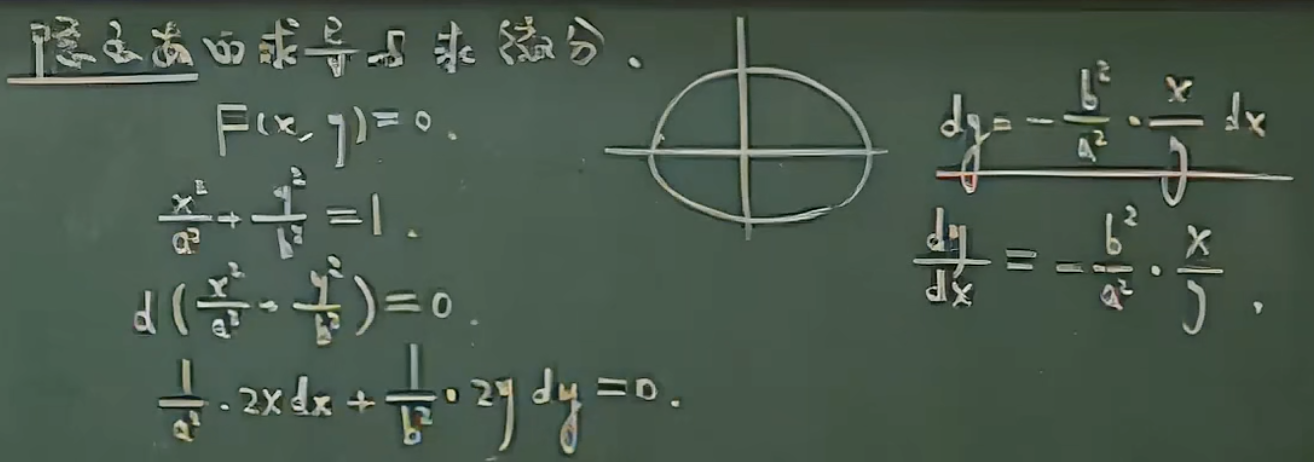 隐函数的求导与求微分.
F(x, y)=0.
x²/a² + y²/b² = 1.
d(x²/a² + y²/b²)=0.
1/a² · 2x dx + 1/b² · 2y dy = 0.
dy = - b²/a² · x/y dx
dy/dx = - b²/a² · x/y .